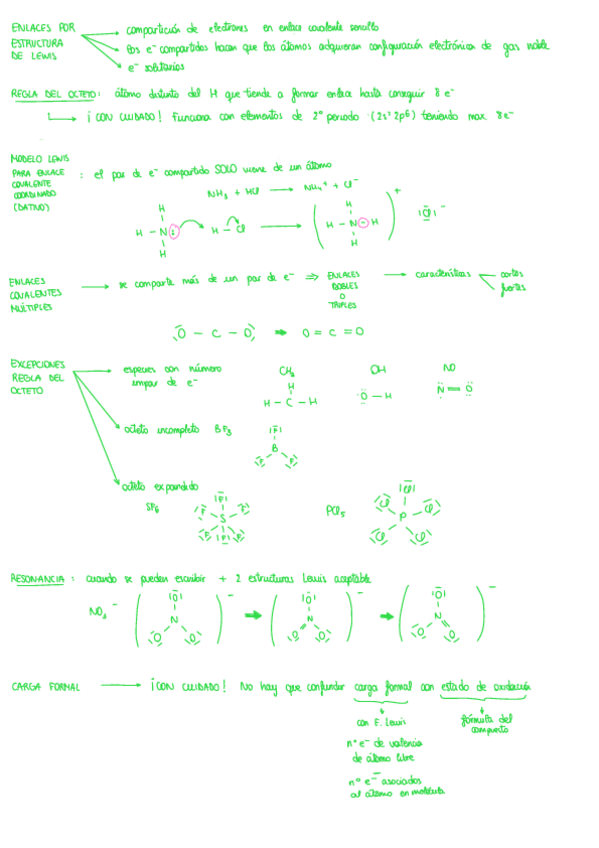 ENLACES POR
ESTRUCTURA
DE LEWIS
compartición de electrones en enlace covalente sencillo
los e⁻ compartidos hacen que los átomos adquieran configuración electrónica de gas noble
e⁻ solitarios
REGLA DEL OCTETO: átomo distinto del H que tiende a formar enlace hasta conseguir 8 e⁻
¡CON CUIDADO! Funciona con elementos de 2º periodo (2s² 2p⁶) teniendo max 8e⁻
MODELO LEWIS
PARA ENLACE
COVALENTE
COORDINADO
(DATIVO)
: el par de e⁻ compartido SOLO viene de un átomo
NH₃ + HCl → NH₄⁺ + Cl⁻
H
H — N : H — Cl
H
H
H — N — H
H
+
|Cl| ⁻
ENLACES
COVALENTES
MÚLTIPLES
se comparte más de un par de e⁻ ⇒ ENLACES
DOBLES
O
TRIPLES
características
cortos
fuertes
O — C — O → O = C = O
EXCEPCIONES
REGLA DEL
OCTETO
especies con número
impar de e⁻
CH₃
H
H — C — H
OH
O — H
NO
N = O
octeto incompleto BF₃
F
B
F F
octeto expandido
SF₆
F
F F
S
F F F
PCl₅
Cl
Cl Cl
P
Cl Cl
RESONANCIA: cuando se pueden escribir + 2 estructuras Lewis aceptable
⁻
O
N
O O
⁻
O
N
O O
⁻
O
N
O O
⁻
CARGA FORMAL → ¡CON CUIDADO! No hay que confundir carga formal con estado de oxidación
con E. Lewis
fórmula del
compuesto
nº e⁻ de valencia
de átomo libre
—
nº e⁻ asociados
al átomo en molécula